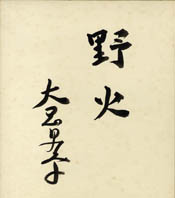 野火
大岡昇平